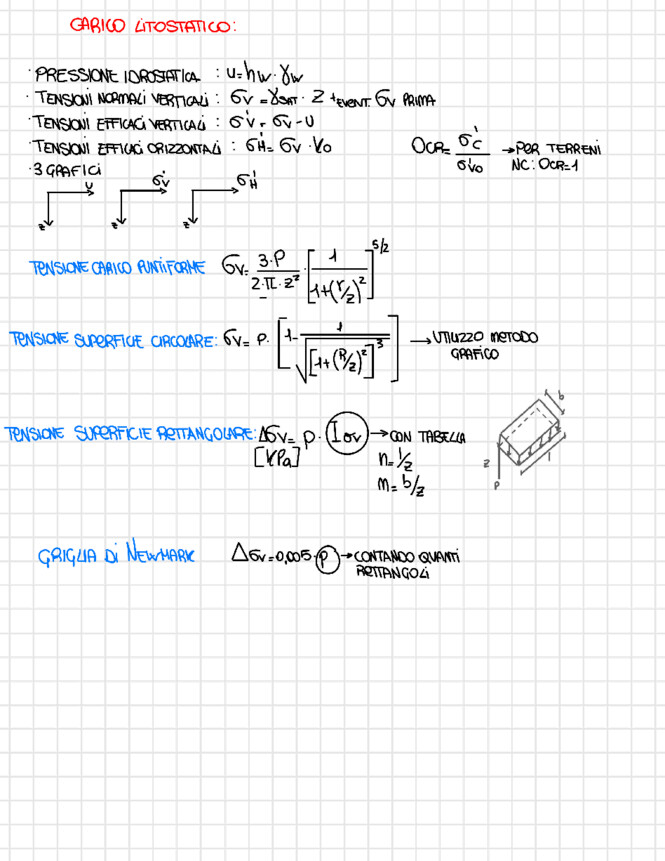 CARICO LITOSTATICO:
· PRESSIONE IDROSTATICA : u = hw · γw
· TENSIONI NORMALI VERTICALI : σv = γSAT · z + EVENT. σv PRIMA
· TENSIONI EFFICACI VERTICALI : σ'v = σv - u
· TENSIONI EFFICACI ORIZZONTALI : σ'H = σv · K0
OCR = σ'c / σ'v0 → PER TERRENI
NC: OCR=1
· 3 GRAFICI
u σ'v σ'H
z z z
TENSIONE CARICO PUNTIFORME σv = 3·P / 2·π·z² · [1 / 1+(r/z)²]^5/2
TENSIONE SUPERFICE CIRCOLARE: σv = P · [1 - 1 / √[1+(R/z)²]³] → UTILIZZO METODO
GRAFICO
TENSIONE SUPERFICIE RETTANGOLARE: Δσv = p · Iσv → CON TABELLA
[KPa]
n = l/z
m = b/z
b
z
l
P
GRIGLIA DI NEWMARK Δσv = 0,005 · p → CONTANDO QUANTI
RETTANGOLI